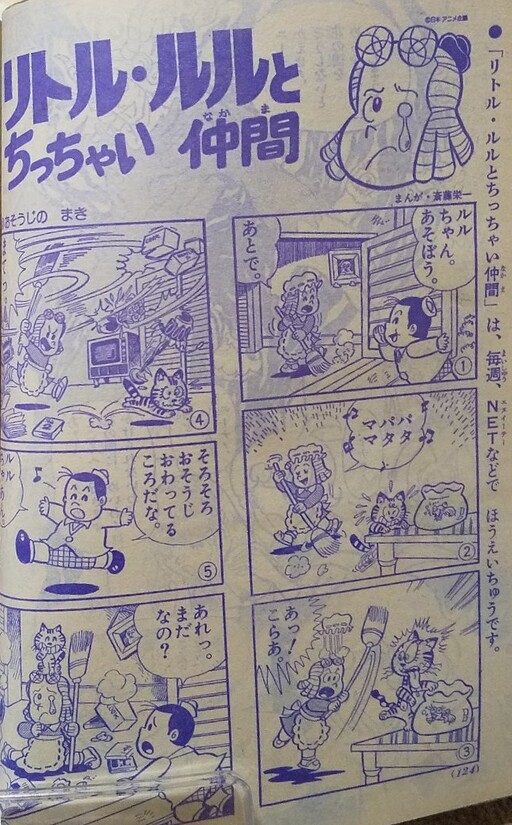 ©日本アニメ企画
リトル・ルルと
ちっちゃい 仲間
なか ま
まんが・斎藤栄一
●「リトル・ルルとちっちゃい仲間」は、毎週、NETなどで ほうえいちゅうです。
なか ま
まいしゅう
おそうじの まき
ルル
ちゃん。
あそぼう。
あとで。
①
パパ
タタ
ママ
②
あっ!
こらあ。
③
まてっ。
④
そろそろ
おそうじ
おわってる
ころだな。
ルル
ちゃあん。
⑤
あれっ。
まだ
なの?
(124)